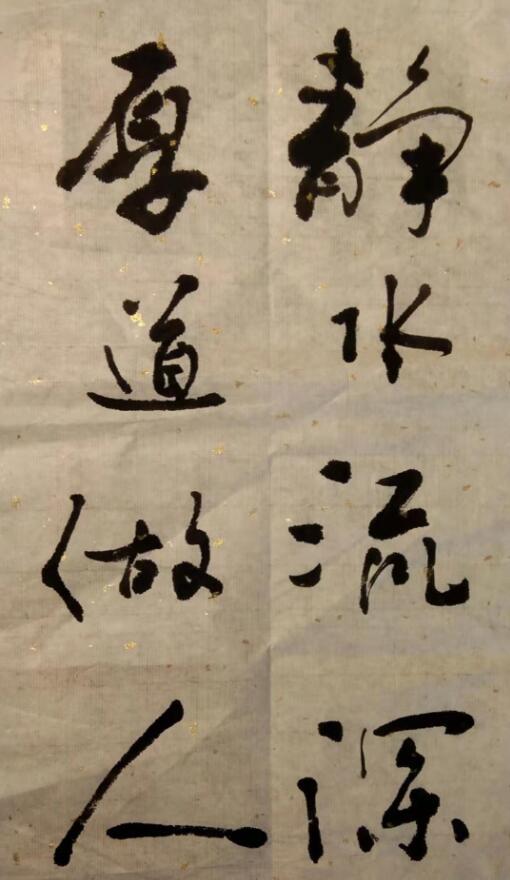 静水流深
厚道做人